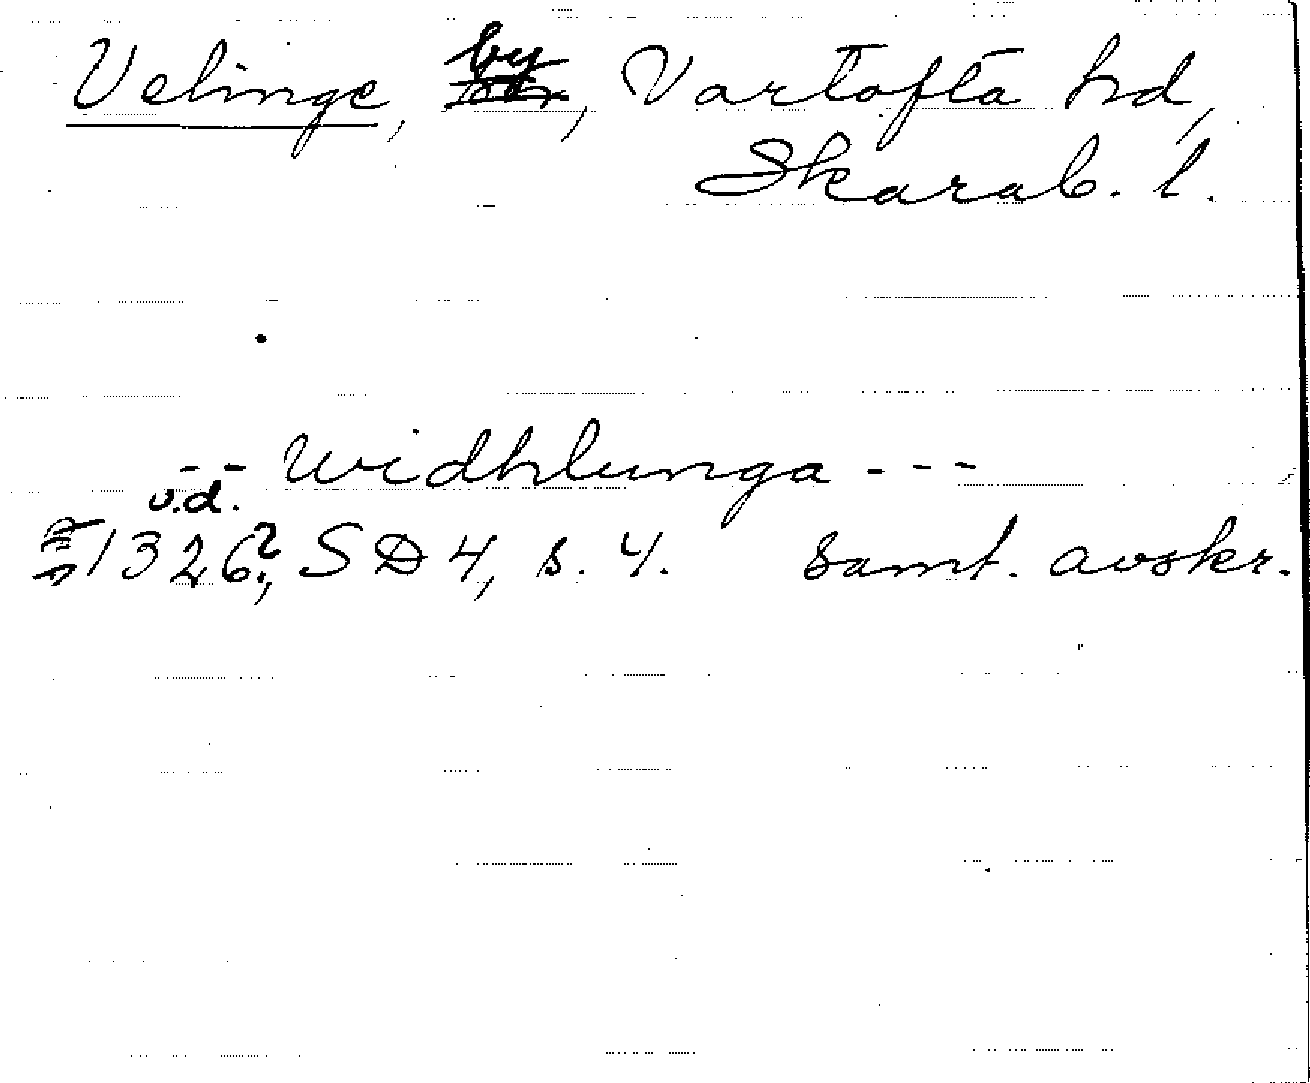 Velinge, by, Vartofta hd,
Skarab. l.
-- Widhlunga ---
u.d.
1326?, SD 4, s. 4. Samt. avskr.